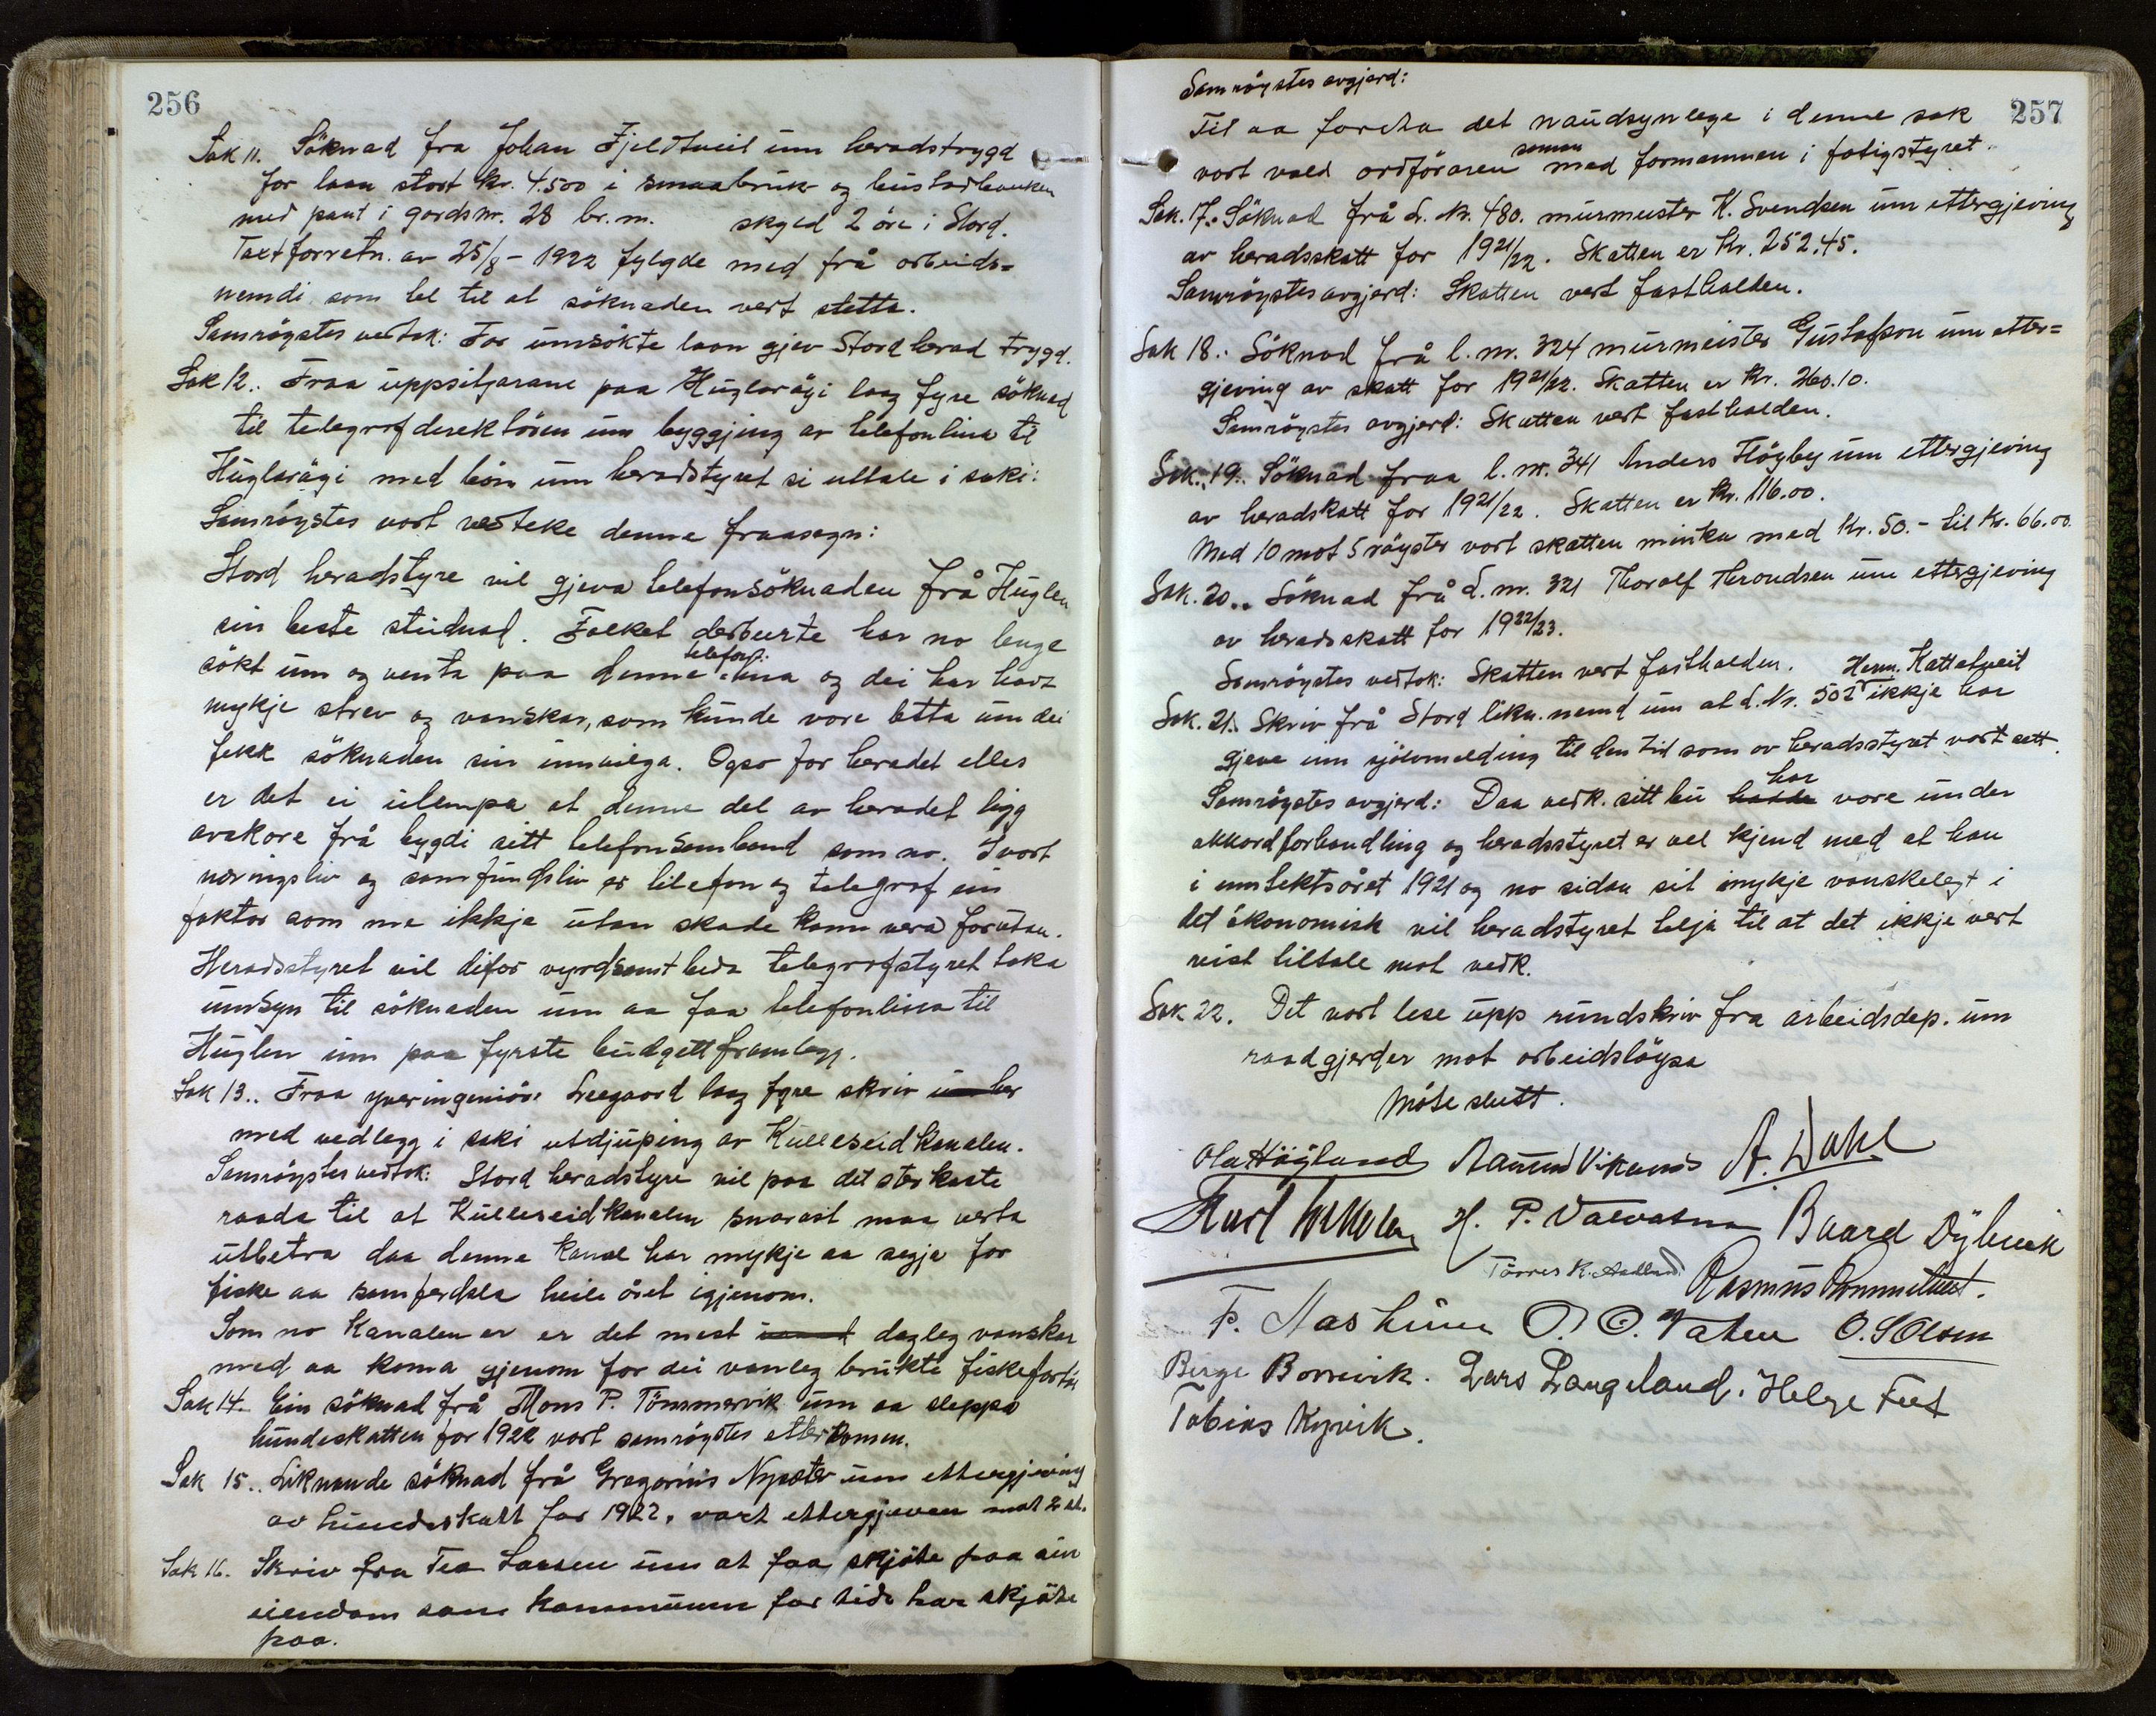 256
Sak 11. Söknad fra Johan Fjeldtveit um heradstrygd
for laan stort kr. 4.500 i smaabruk og bustadbanken
med pant i gardsnr. 28 br.nr. skyld 2 öre i Stord.
Taxtforretn. av 25/8 - 1922 fylgde med frå arbeids=
nemdi som hel til at söknaden vert stetta.
Samröystes vedtok: For umsökte laan gjev Stord herad trygd.
Sak 12.. Fraa uppsitjarane paa Huglaröyi laag fyre söknad
til telegrafdirektören um byggjing av telefonlina til
Huglaröyi med bön um heradstyret si uttale i saki:
Samröystes vart vedteke denne fraasegn:
Stord heradstyre vil gjeva telefonsöknaden frå Huglen
sin beste studnad. Folket derburte har no lenge
sökt um og venta paa denne telefon- lina og dei har havt
mykje strev og vanskar, som kunde vore letta um dei
fekk söknaden sin innvilga. Ogso for heradet elles
er det ei ulempa at denne del av heradet ligg
avskore frå bygdi sitt telefonsamband som no. I vort
næringsliv og samfundsliv er telefon og telegraf ein
faktor som me ikkje utan skade kann vera forutan.
Heradsstyret vil difor vyrdsamt beda telegrafstyret taka
umsyn til söknaden um aa faa telefonlina til
Huglen inn paa fyrste budgettframlegg.
Sak 13.. Fraa yveringeniör Leegaard laag fyre skriv
med vedlegg i saki utdjuping av Kulleseidkanalen.
Samröystes vedtok: Stord heradstyre vil paa det sterkaste
raada til at Kulleseidkanalen snarast maa verta
utbetra daa denne kanal har mykje aa segja for
fiske aa samferdsla heile året igjenom.
Som no Kanalen er er det mest dagleg vanskar
med aa koma gjenom for dei vanleg brukte fiskefartöi
Sak 14. Ein söknad frå Mons P. Tömmervik um aa sleppa
hundeskatten for 1922 vart samröystes etterkomen.
Sak 15.. Liknande söknad frå Gregorius Nysæter um ettergjeving
av hundeskatt for 1922. vart ettergjeven mot 2 st.
Sak 16. Skriv fra Tea Larsen um at faa skjöte paa ein
eiendom som kommunen for tida har skjöte
paa.
257
Samröystes avgjerd:
Til aa foreta det naudsynlege i denne sak
vart vald ordföraren saman med formannen i fatigstyret.
Sak. 17. Söknad frå L. Nr. 480. murmeister K. Svendsen um ettergjeving
av heradsskatt for 1921/22. Skatten er Kr. 252.45.
Samröystes avgjerd: Skatten vert fasthalden.
Sak 18.. Söknad frå l. nr. 324 murmeister Gustafson um etter=
gjeving av skatt for 1921/22. Skatten er Kr. 260.10.
Samröystes avgjerd: Skatten vert fasthalden.
Sak. 19.. Söknad fraa l. nr. 341 Anders Högby um ettergjeving
av heradskatt for 1921/22. Skatten er Kr. 116.00.
Med 10 mot 5 röyster vart skatten minka med Kr. 50.- til Kr. 66.00.
Sak. 20.. Söknad frå L. nr. 321 Thoralf Throndsen um ettergjeving
av heradsskatt for 1922/23.
Samröystes vedtok: Skatten vert fasthalden.
Sak. 21.. Skriv frå Stord likn. nemd um at L. Nr. 502 Herm. Kattatveit ikkje har
gjeve inn sjölvmelding til den tid som av heradsstyret vart sett.
Samröystes avgjerd: Daa vedk. sitt bu hadde har vore under
akkordforhandling og heradsstyret er vel kjend med at han
i inntektsåret 1921 og no sidan sit mykje vanskelegt i
det ökonomisk vil heradstyret helja til at det ikkje vert
reist tiltale mot vedk.
Sak 22. Det vart lese upp rundskriv fra arbeidsdep. um
raadgjerder mot arbeidslöysa
Möte slutt.
Ola Höyland Aamund Vikanes A. Dahl
Karl H. P. Valvatna Baard Dybvik
Törres K. Aadland Rasmus Rommetveit.
F. Aashein O. O. Vatna O. S Olsen
Birge Borrevik. Lars Langeland. Helge Feet
Tobias Kyvik.